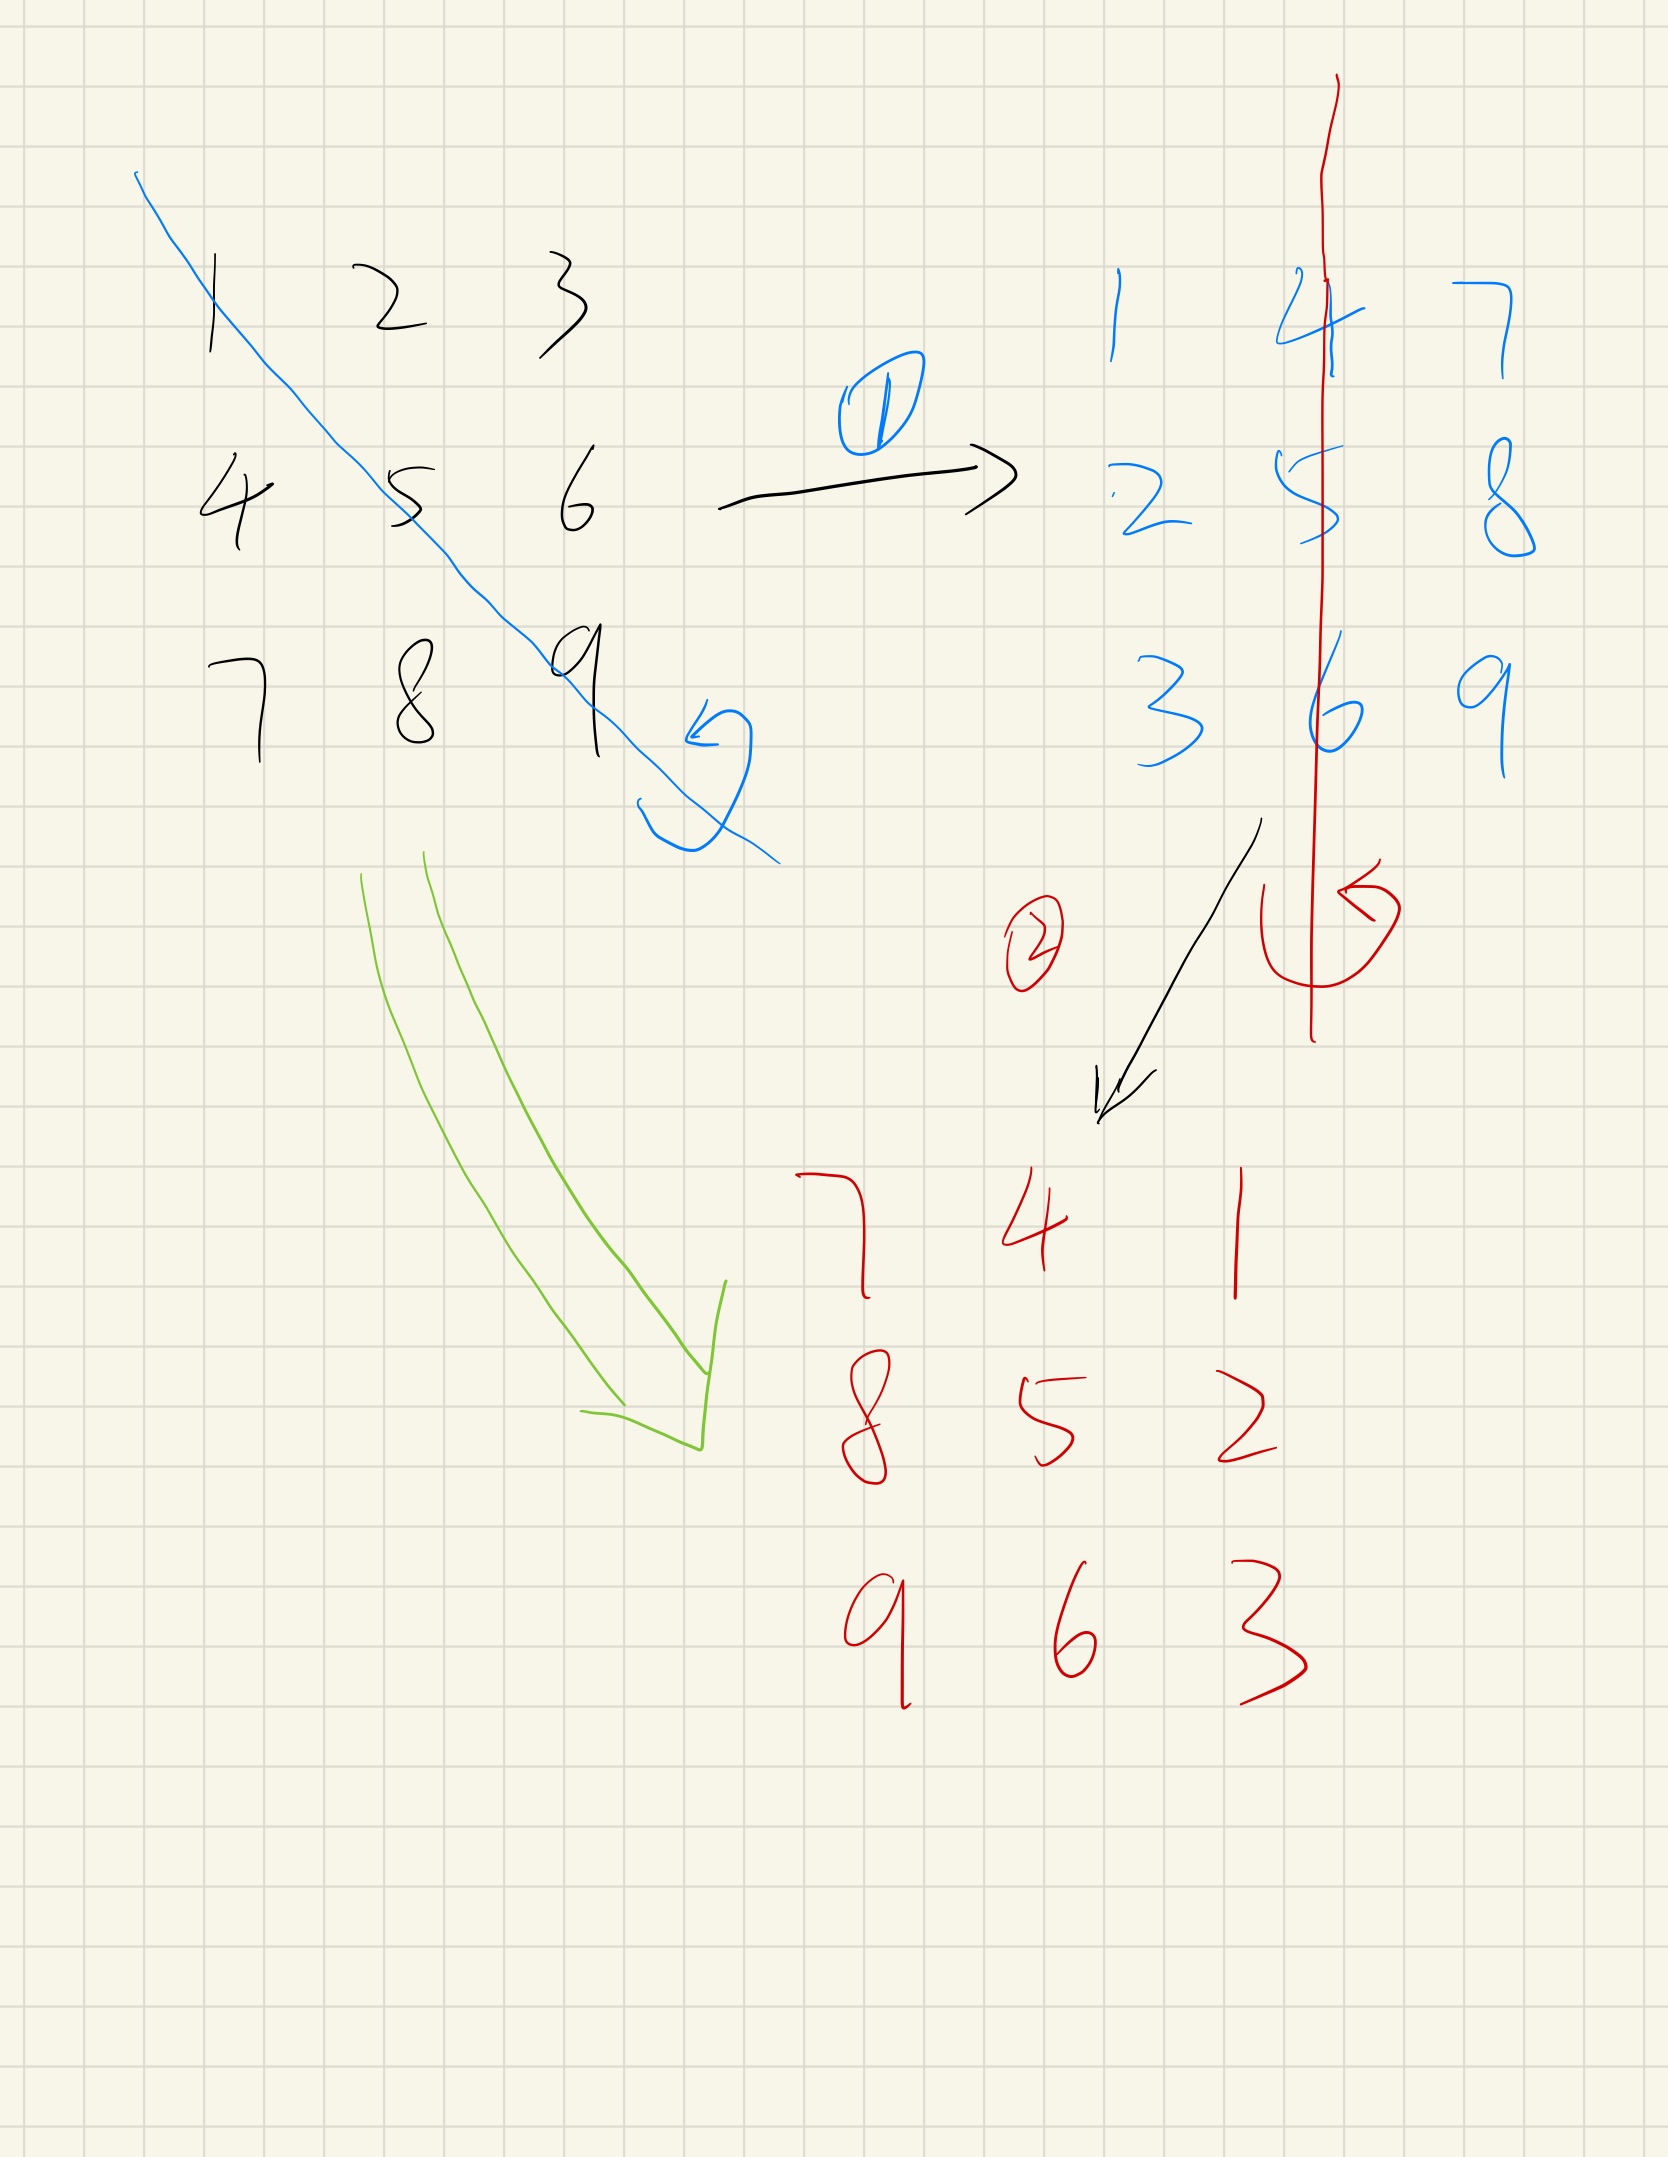 1 2 3
4 5 6
7 8 9
①
1 4 7
2 5 8
3 6 9
②
7 4 1
8 5 2
9 6 3